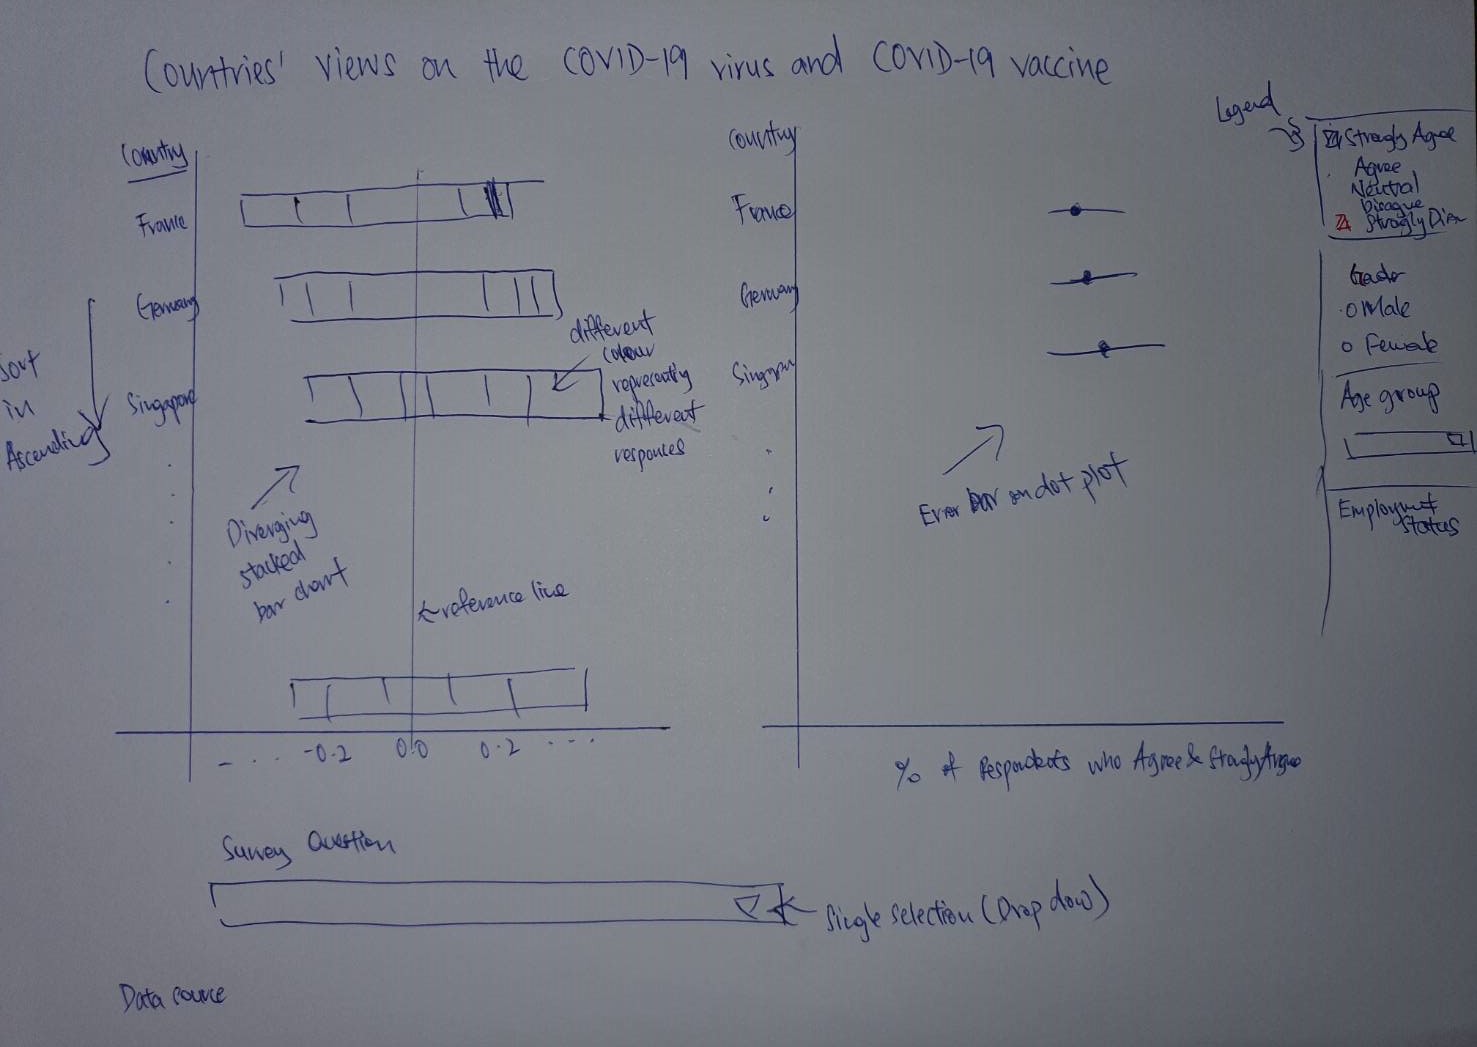 Countries' views on the COVID-19 virus and COVID-19 vaccine
Country
France
Germany
Singapore
Sort
in
Ascending
different
colour
representing
different
responces
Diverging
stacked
bar chart
reference line
-0.2
0.0
0.2
Country
France
Germany
Singapor
Error bar on dot plot
% of Respondents who Agree & Strongly Agree
Legend
Strongly Agree
Agree
Neutral
Disagree
Strongly Disa
Gender
Male
Female
Age group
Employment
Status
Survey Question
Single selection (Drop down)
Data source